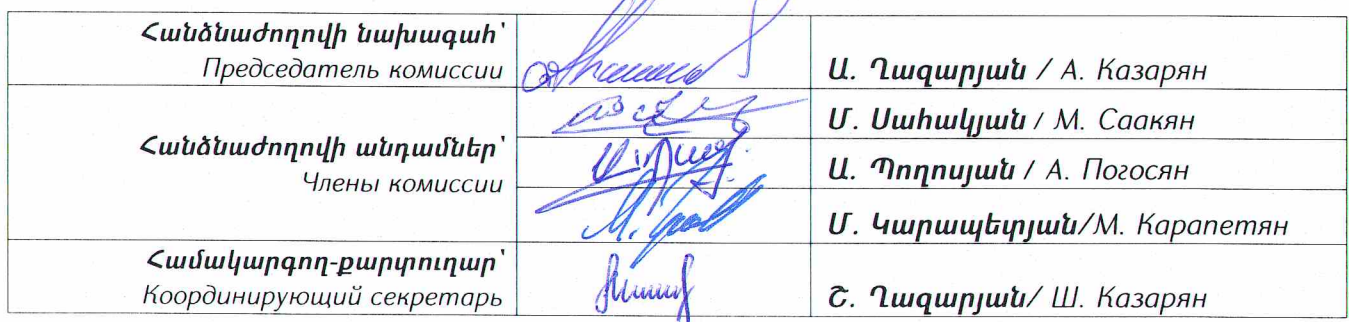 Հանձնաժողովի նախագահ՝
Председатель комиссии
Ա. Ղազարյան / А. Казарян
Հանձնաժողովի անդամներ՝
Члены комиссии
Մ. Սահակյան / М. Саакян
Ա. Պողոսյան / А. Погосян
Մ. Կարապետյան/М. Карапетян
Համակարգող-քարտուղար՝
Координирующий секретарь
Շ. Ղազարյան/ Ш. Казарян